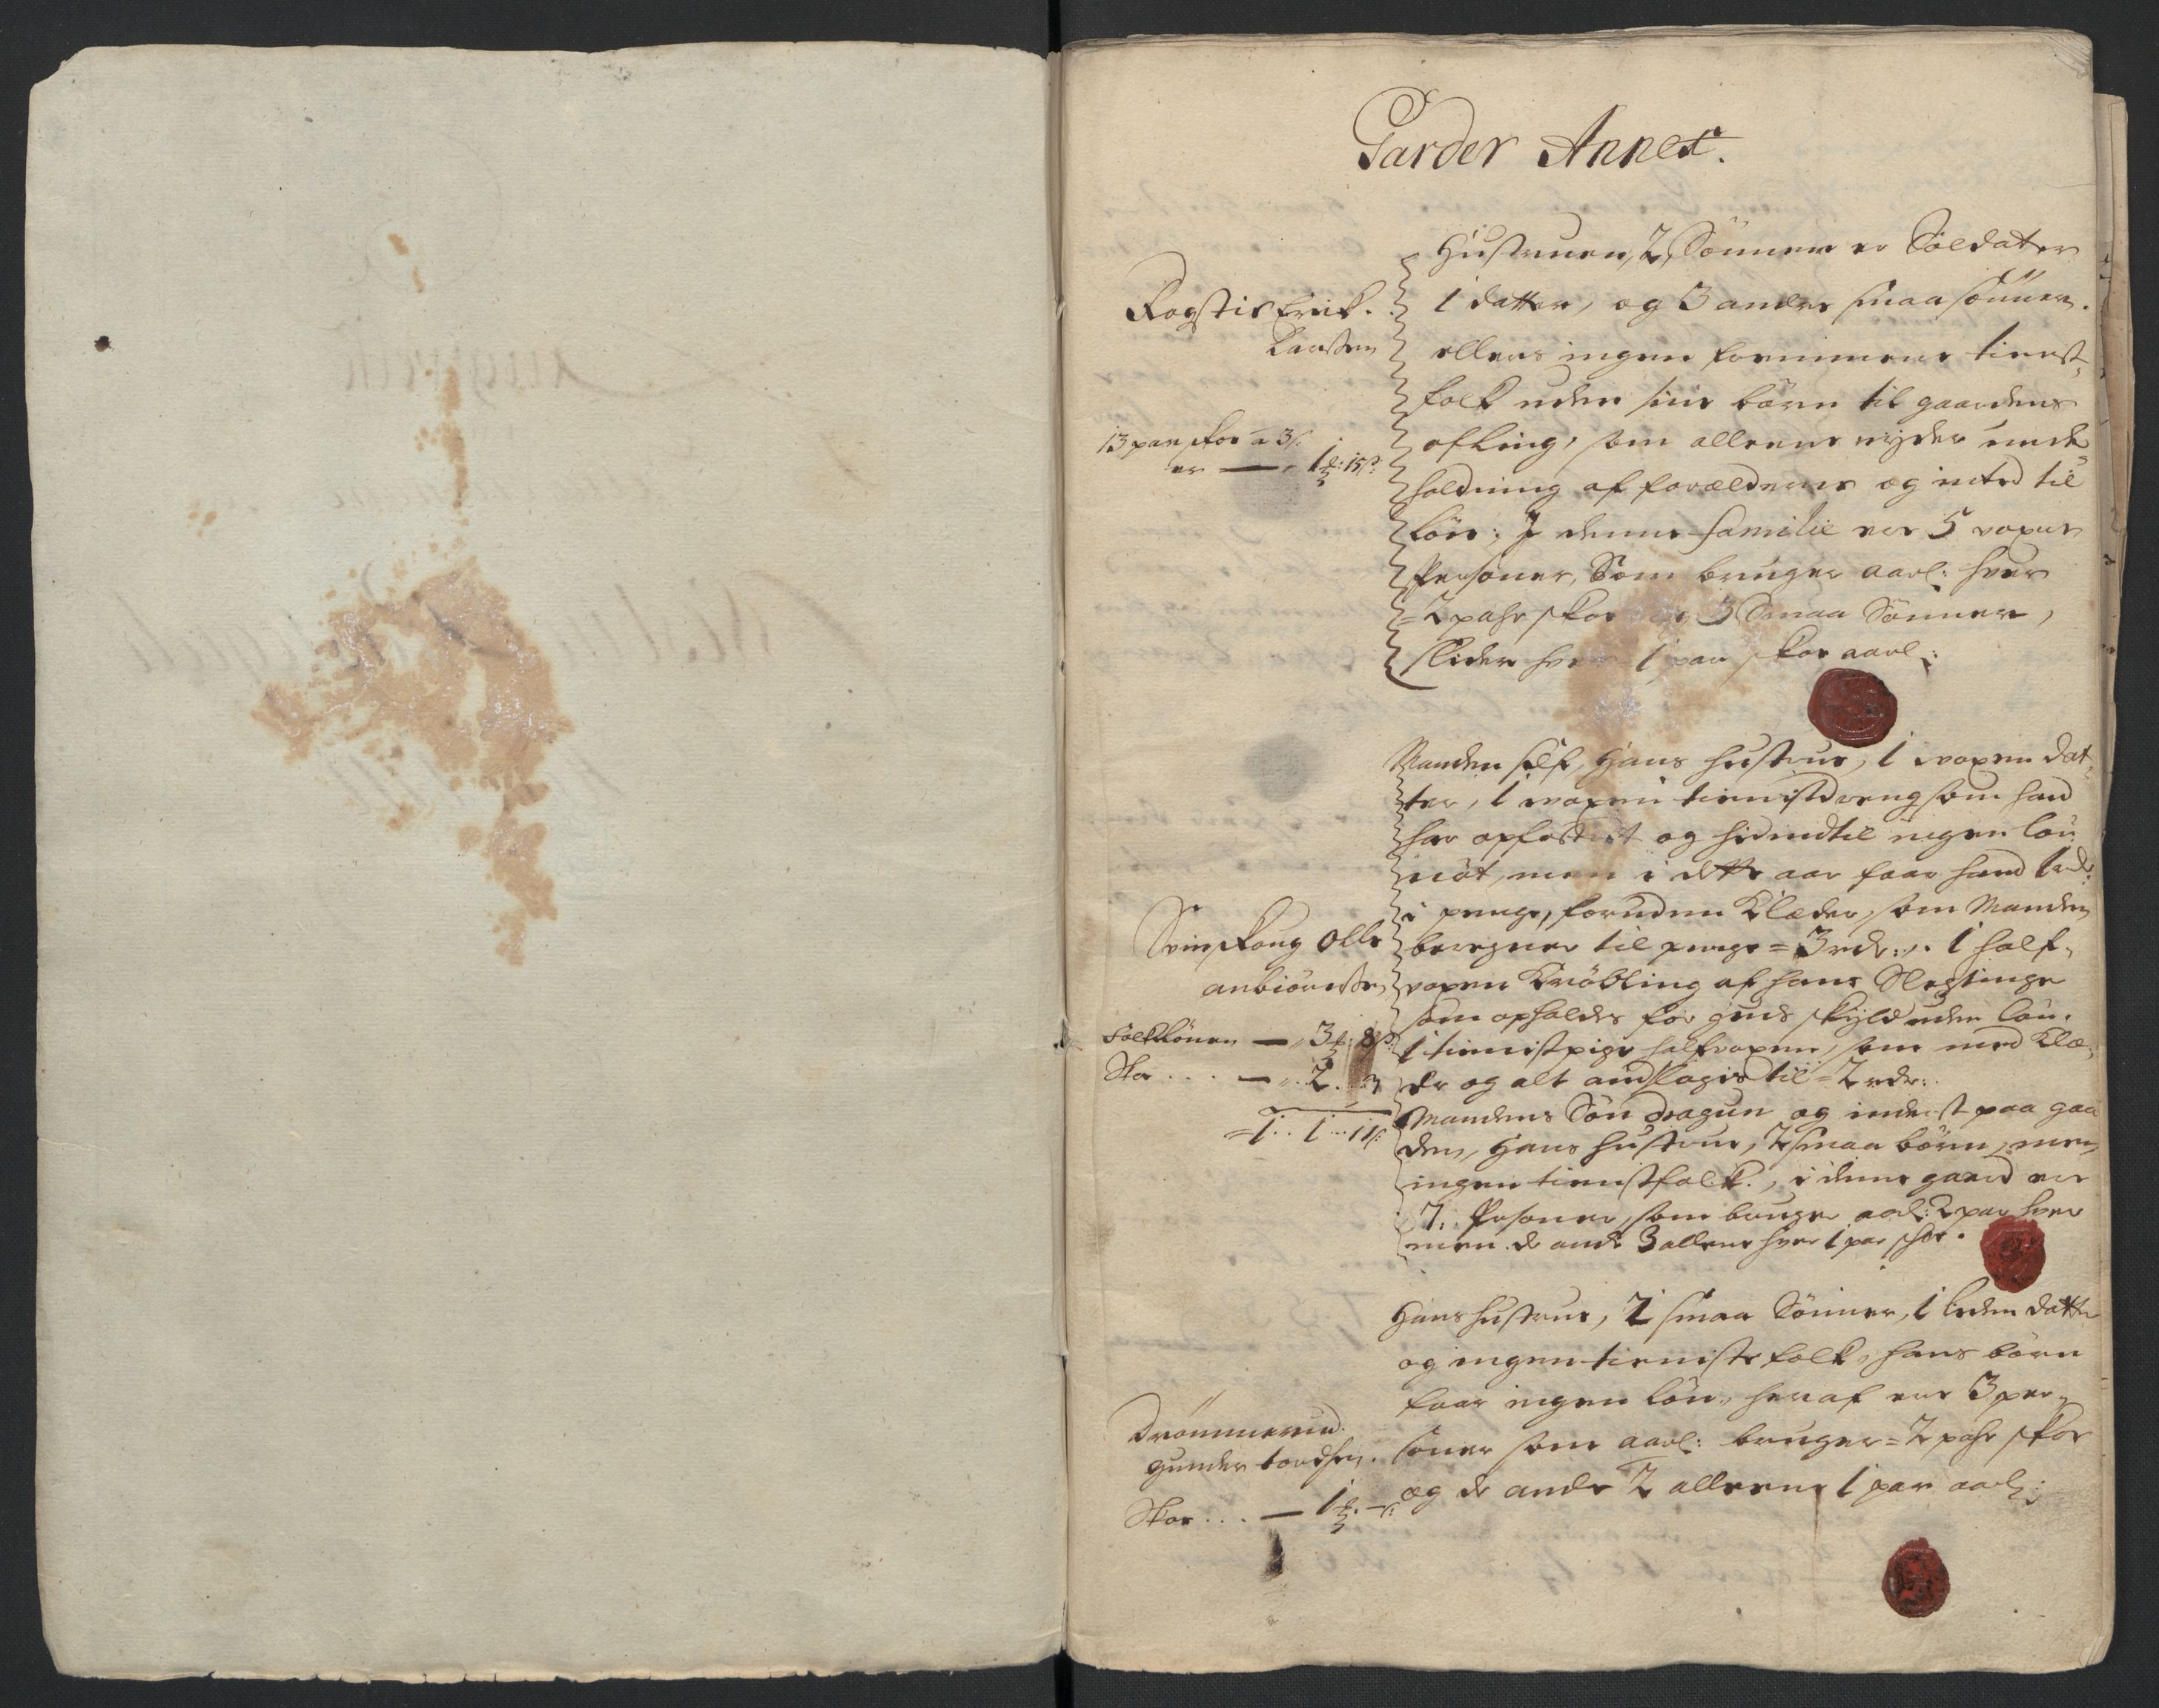 Garder Annex.
Rogstis Erick
Larssen
13 par skoe a 3ß:
er — 1 : 15ß:
Hustruen, 2 Sönner er Soldater
1 datter, og 3 andre smaa sönner.
ellers ingen fremmene tienst-
folk uden sine börn til gaardens
afling, som alleene nyder under-
holdning af forælderne og inted til
lön; I denne familie er 5 voxne
Personer, Som bruger aarl: hver
2 pahr skoe 3 Smaa Sönner,
slider hver 1 par skoe aarl:
Svinskoug Olle
anbiörnssen
Folkelönen — 3 : 8ß:
Skoe . . . — 2 .
1 . . 1 . . 11ß:
Manden self, Hans hustrue, 1 voxen dat-
ter, 1 voxen tienistdreng som hand
har opfostret og hidindtil ingen lön
nöt, men i dette aar faar hand 1 rdr:
i penge, foruden Klæder, som Manden
beregner til penge = 3 rdr: . 1 half-
voxen Kröbling af hans Slegtinge
som opholdes for guds skyld uden lön.
1 tienistpige halfvoxen, som med Klæ-
der og alt andslagis til = 2 rdr:
Mandens Sön dragun og inderst paa gaar
den, Hans hustrue, 2 smaa börn, men
ingen tienistfolk., i denne gaard er
7: Personer, som bruger aarl: 2 par hver
men de andr 3 allene hver 1 par skoe.
Drömmerud.
gunder tordsen.
Skoe . . . — 1
Hans hustrue, 2 smaa Sönner, 1 liden datter
og ingen tieniste folk, hans börn
faar ingen lön, heraf er 3 per-
soner som aarl: bruger = 2 pahr skoe
og de andr 2 alleene 1 par aarl: